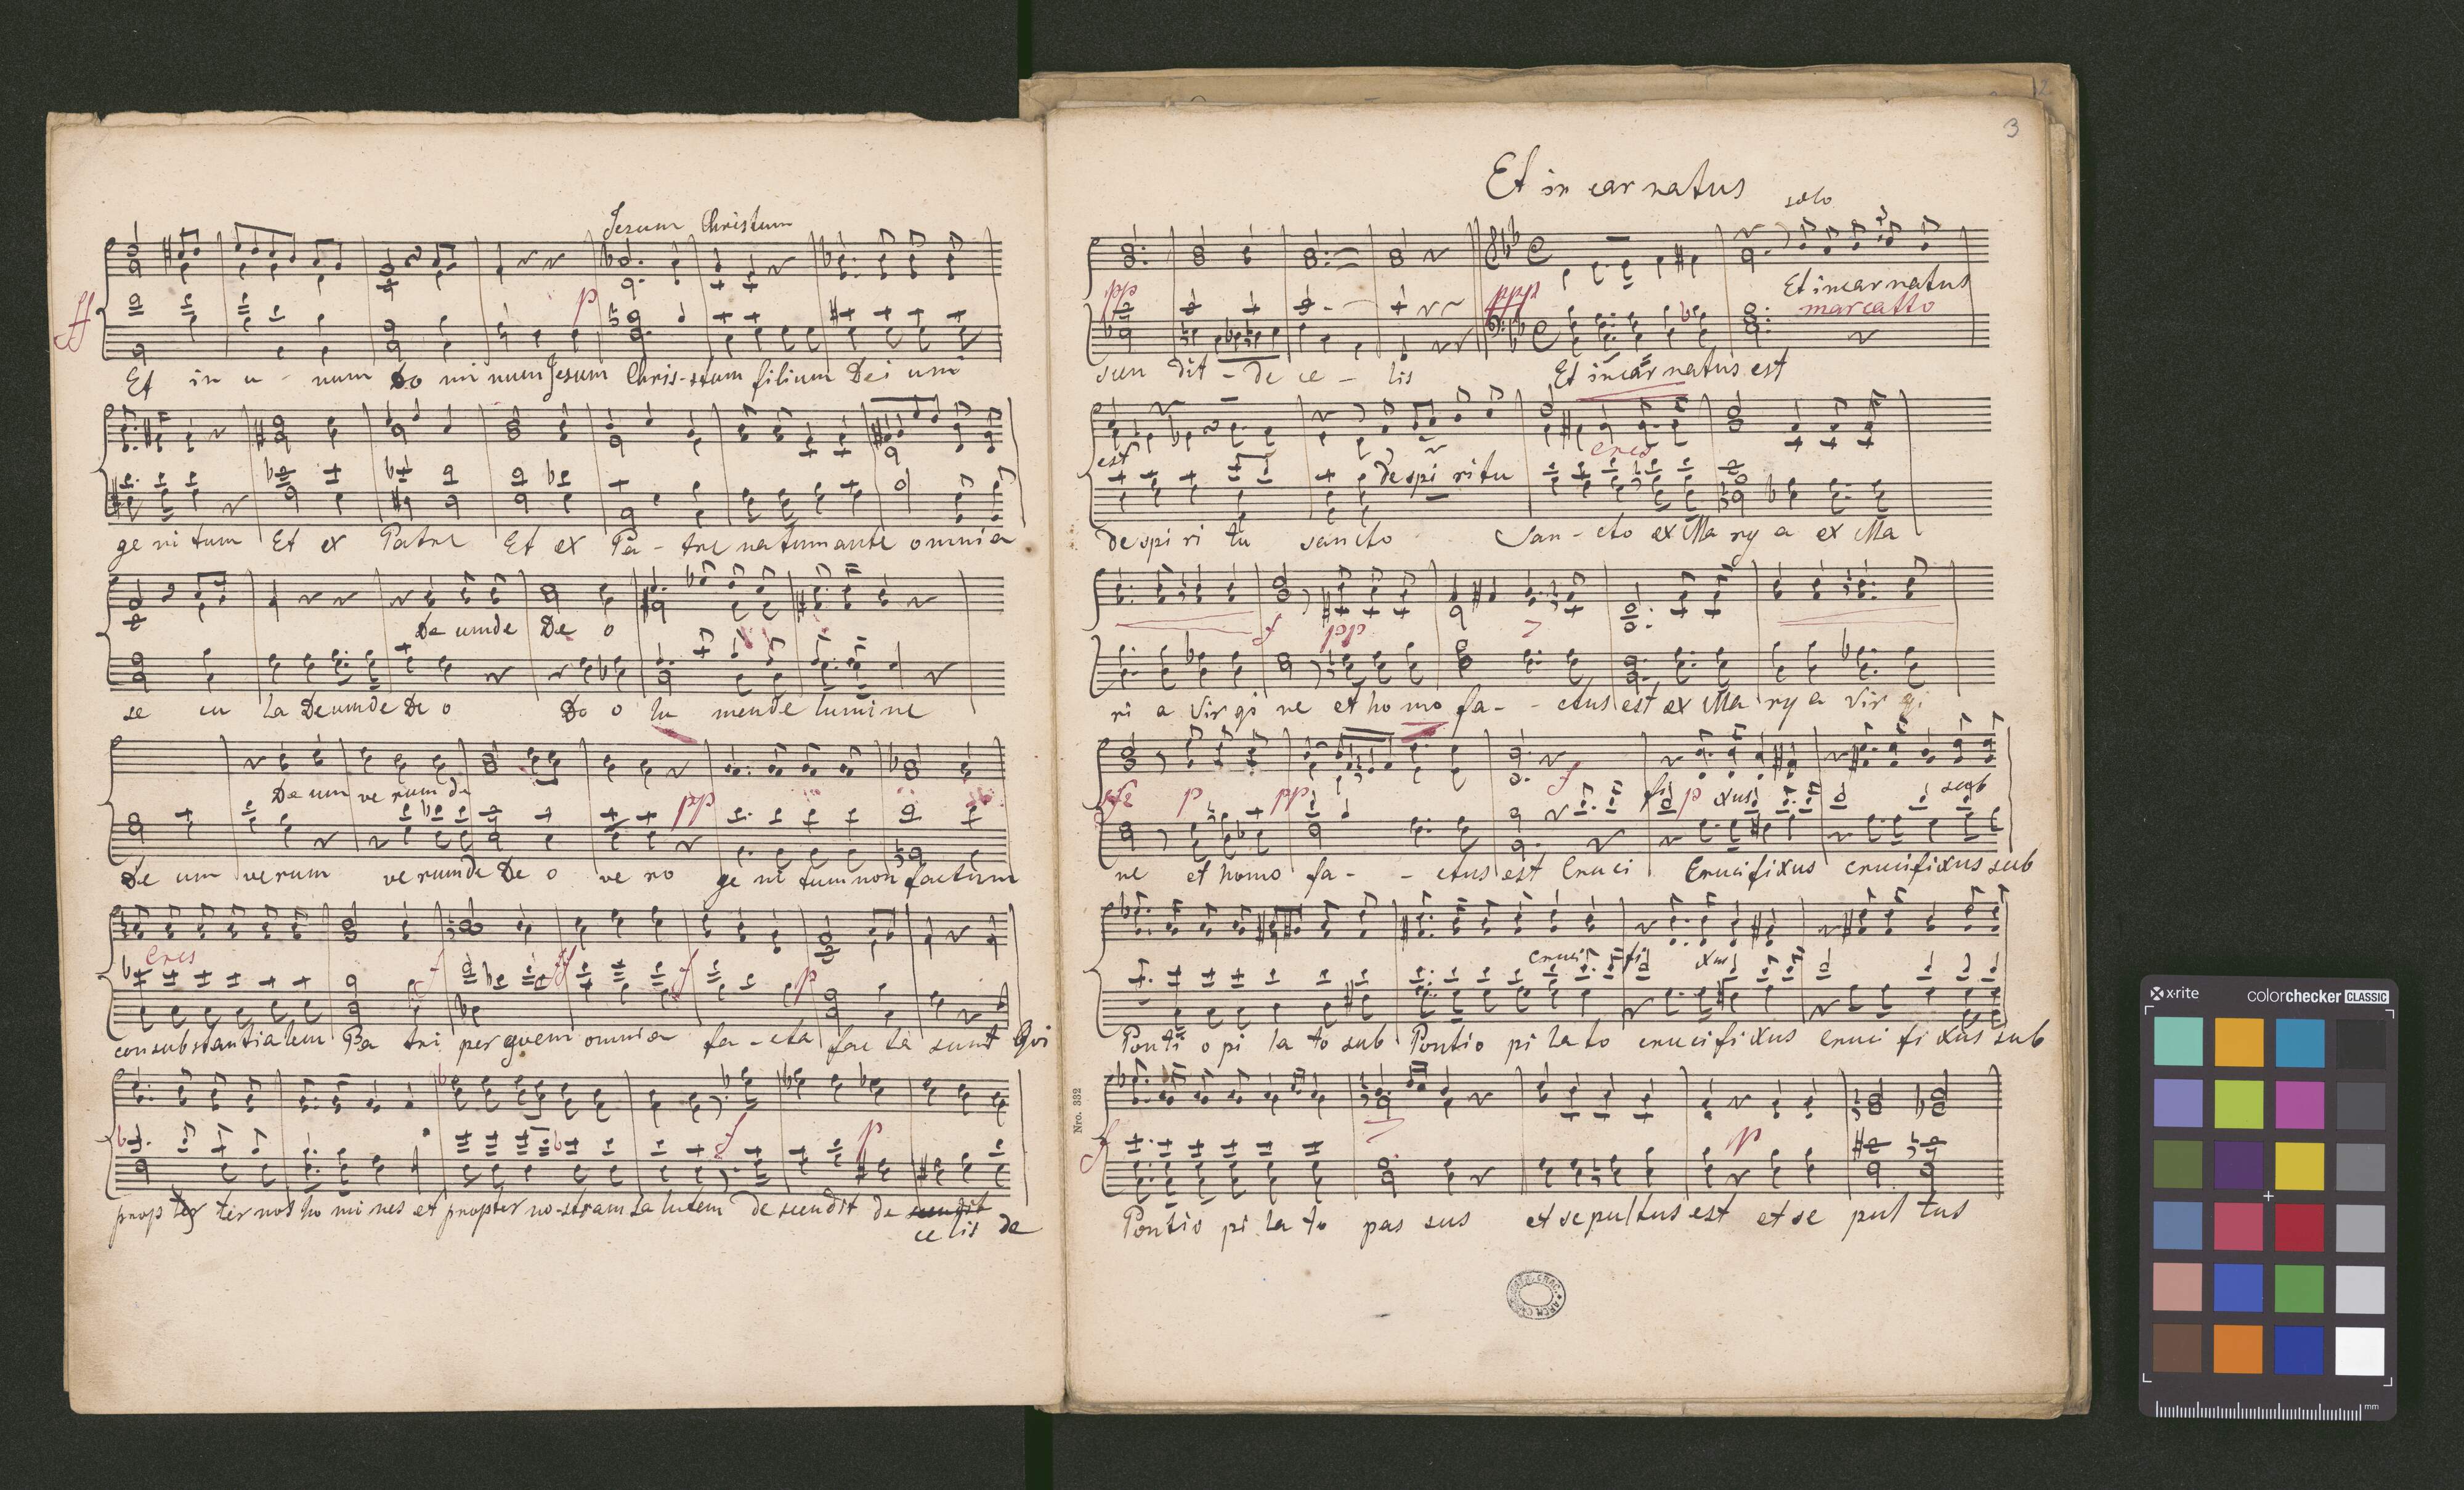 Jesum Christum
ff
p
Et in u - num Do mi num Jesum Chris-stum filium Dei uni
ge ni tum Et ex Patre Et ex Pa - tre natum ante omnia
De um de De o
se cu la De um de De o Do o lu men de lumine
De um ve rum de
pp
De um verum verum de De o ve ro ge ni tum non factum
cres
f ff f p
consubstantialem Pa tri per quem omnia fa - cta fac ta sunt Qui
f p
prop ter ter nos ho mi nes et propter no-stram sa lutem de scendit de scendit
ce lis de
2
3
Et in car natus
solo
Et incarnatus
pp ppp marcatto
scen dit - de ce - lis Et incar natus est
cres
est de spi ritu
de spi ri tu sancto San - cto ex Ma ry a ex Ma
f pp >
ri a Vir gi ne et ho mo fa - - ctus est ex Ma ry a Vir gi
f
fi xus sub
p pp p
ne et homo fa - - ctus est Cruci Crucifixus crucifixus sub
cruci fi xus
Ponti o pi la to sub Pontio pi la to crucifixus cruci fi xus sub
Nro. 332
f > p
Pontio pi la to pas sus et sepultus est et se pul tus
x-rite colorchecker CLASSIC
mm